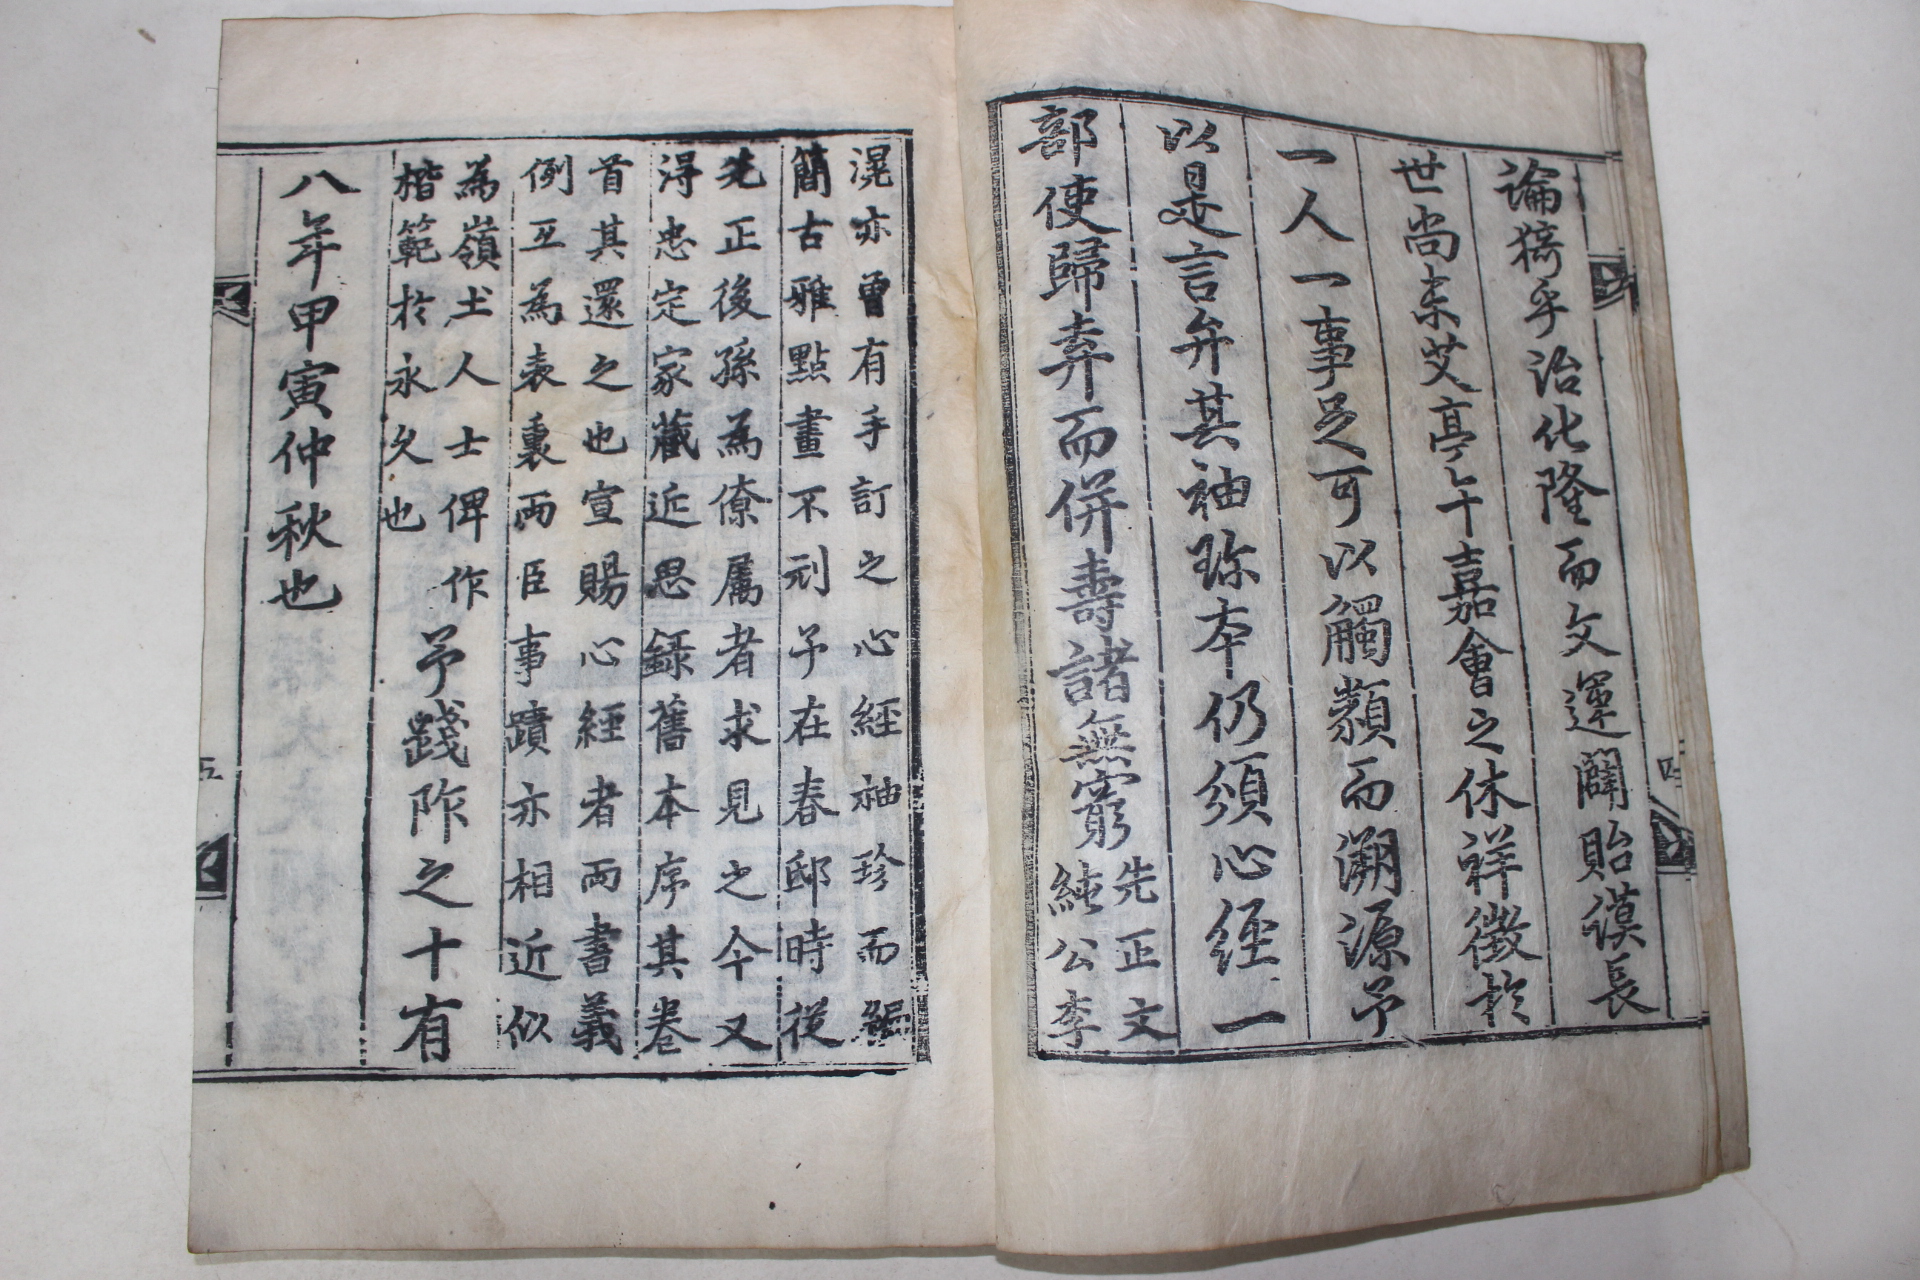 論猗乎治化隆而文運闢貽謨長
世尚未艾亭午嘉會之休祥徵於
一人一事足可以觸類而溯源予
以是言弁其袖珍本仍須心經一
部使歸弆而倂壽諸無窮
先正文
純公李
滉亦曾有手訂之心經袖珍而編
簡古雅點畫不刓予在春邸時從
先正後孫爲僚属者求見之今又
淂忠定家藏近思錄舊本序其卷
首其還之也宣賜心經者兩書義
例互爲表裏兩臣事蹟亦相近似
爲嶺圡人士俾作
楷範於永久也
予踐阼之十有
八年甲寅仲秋也
四
五